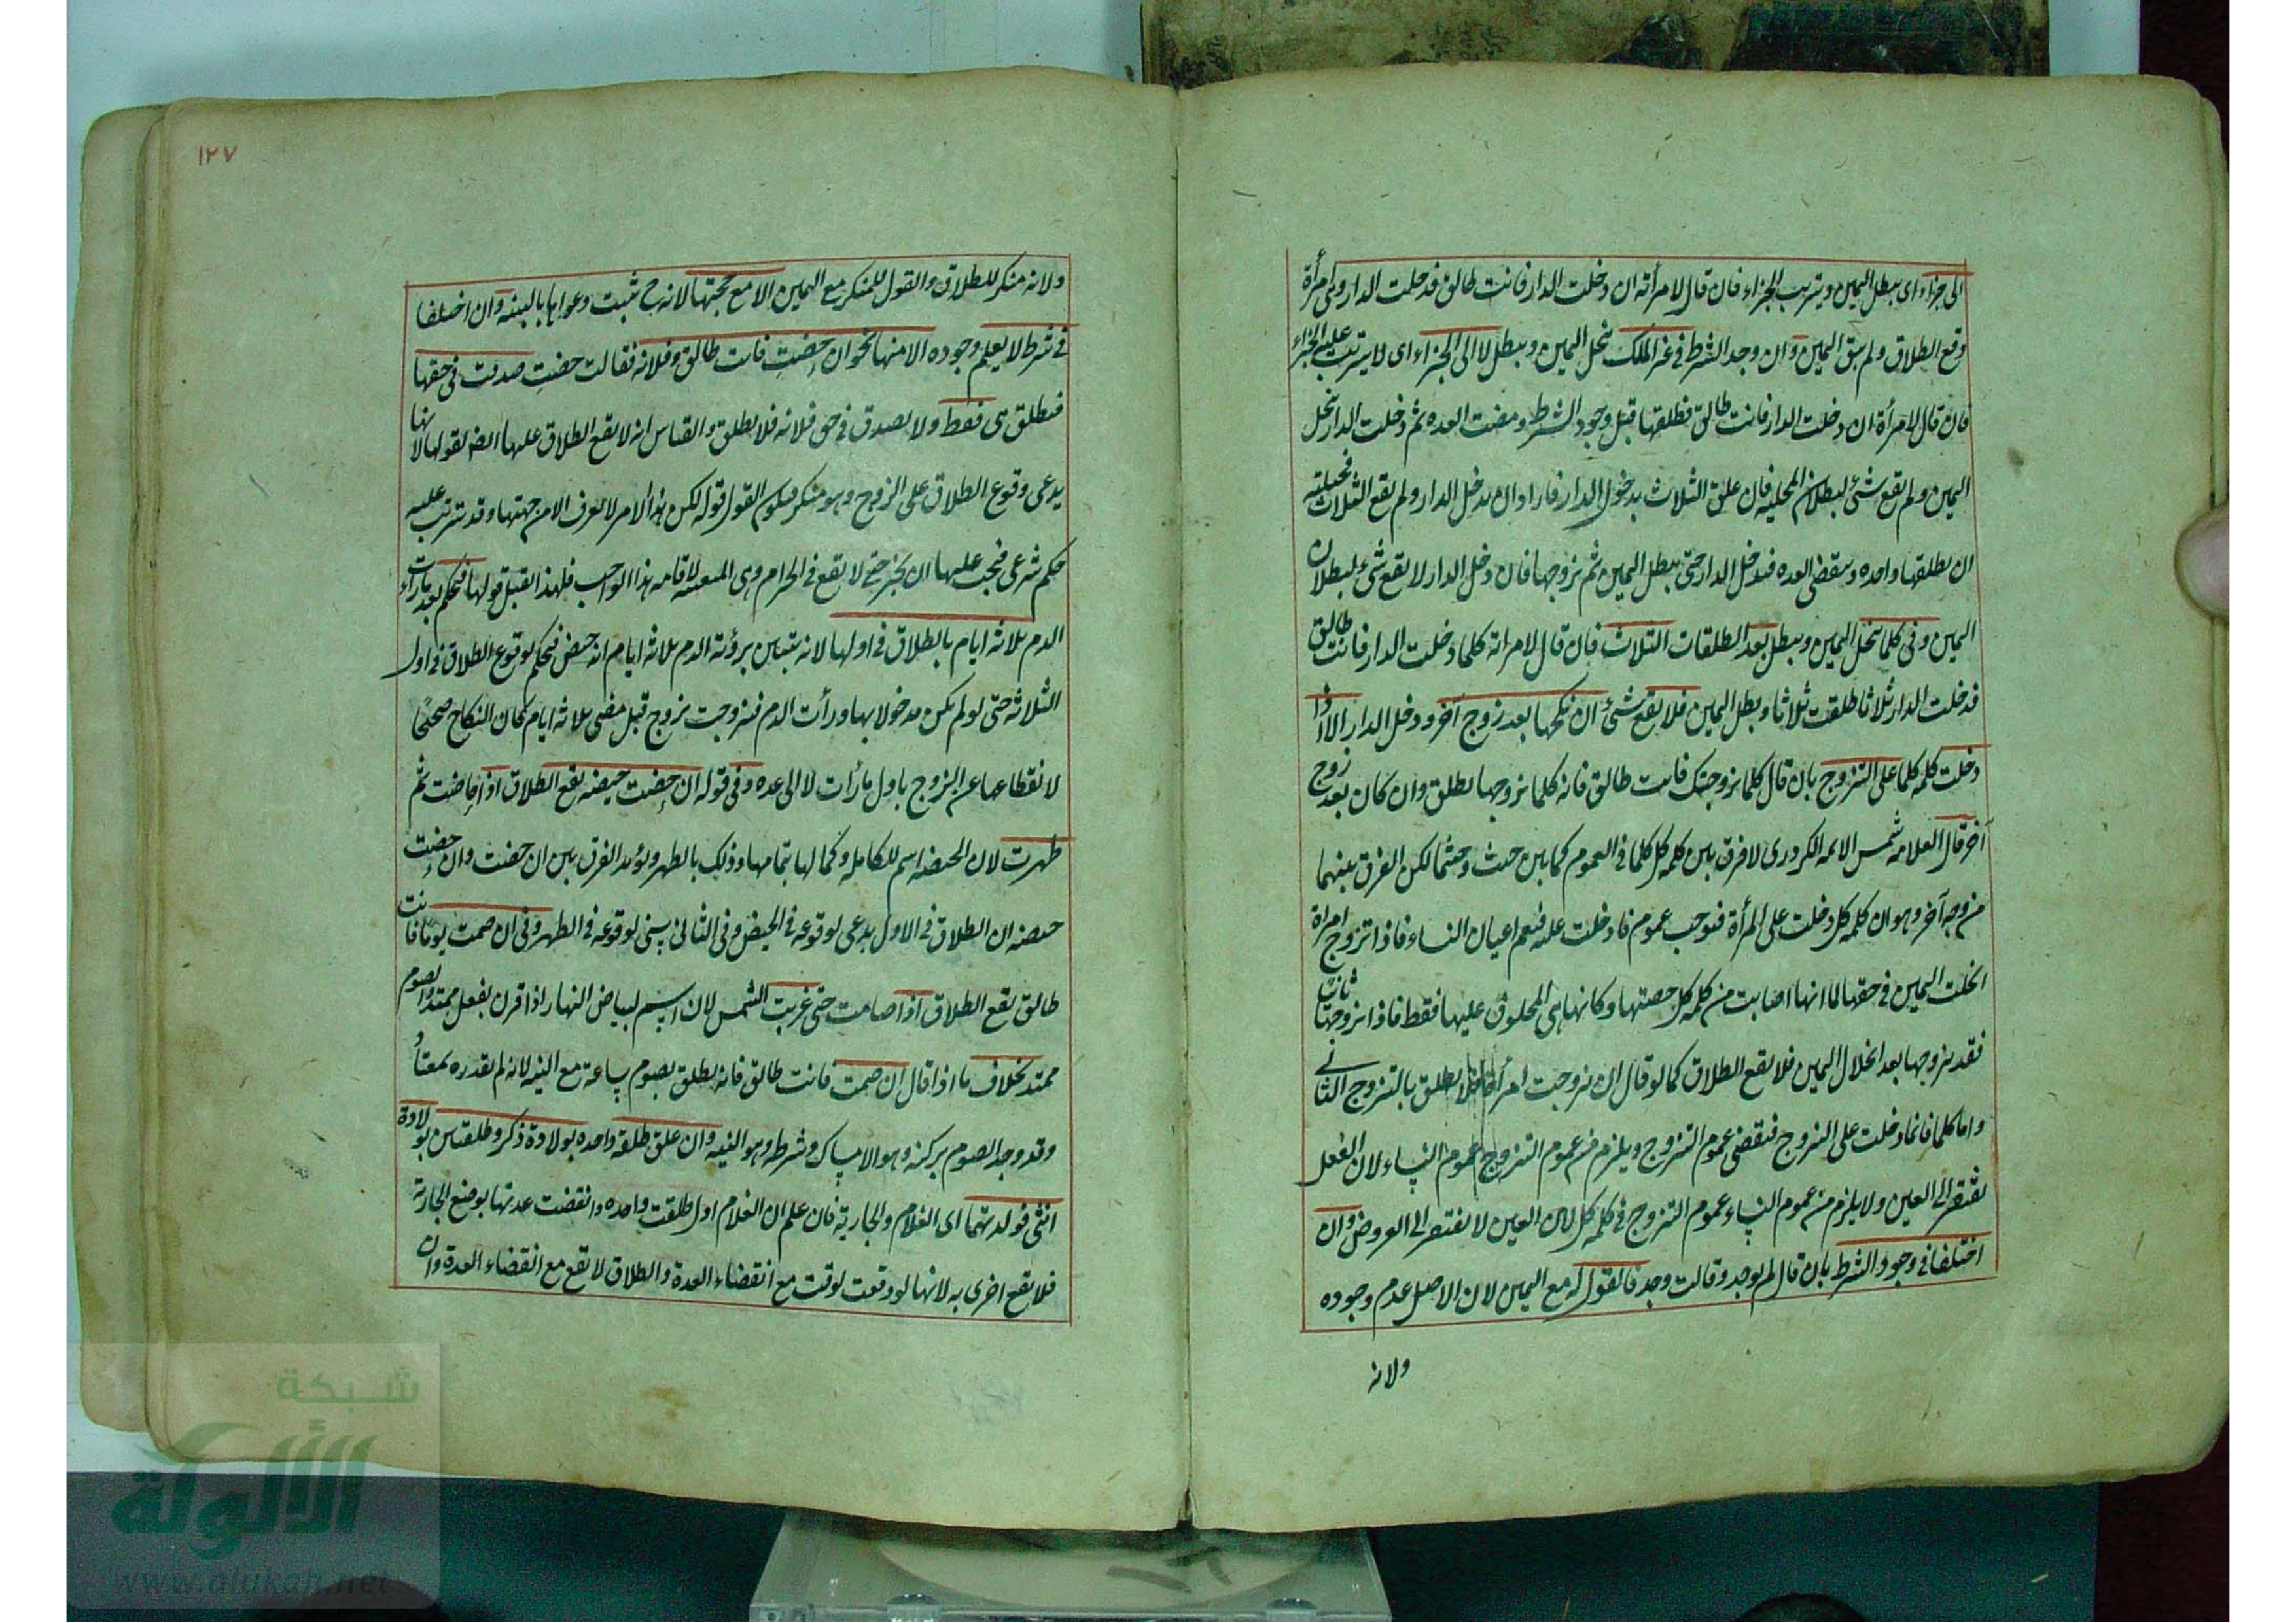 الى جزاء اى يبطل اليمين ويترتب الجزاء فان قال لامرأته ان دخلت الدار فانت طالق فدخلت الدار وهى امرأة
وقع الطلاق ولم يبق اليمين وان وجد الشرط فى غير الملك تنحل اليمين ويبطل لا الى الجزاء اى لا يترتب عليه الجزاء
فان قال لامرأة ان دخلت الدار فانت طالق فطلقها قبل وجود الشرط ومضت العده ثم دخلت الدار تنحل
اليمين ولم يقع شئ لبطلان المحليه فان علق الثلاث بدخول الدار فاراد ان يدخل الدار ولم يقع الثلاث فحيلته
ان يطلقها واحده وينقضى العده فتدخل الدار حتى يبطل اليمين ثم يزوجها فان دخل الدار لا يقع شئ لبطلان
اليمين وفى كلما ينحل اليمين ويبطل بعد الطلقات الثلاث فان قال لامراته كلما دخلت الدار فانت طالق
فدخلت الدار ثلاثا طلقت ثلاثا وبطل اليمين فلا يقع شئ ان نكحها بعد زوج آخر ودخل الدار الا اذا
دخلت كلمه كلما على التزوج بان قال كلما تزوجتك فانت طالق فانه كلما تزوجها يطلق وان كان بعد زوج
آخر قال العلامه شمس الائمه الكردرى لا فرق بين كلمه كل وكلما فى العموم كما بين حيث وحيثما لكن الفرق بينهما
من وجه آخر وهو ان كلمه كل دخلت على المرأة فتوجب عموم ما دخلت عليه فتعم اعيان النساء فاذا تزوج امراة
انحلت اليمين فى حقها لما انها اصابت من كلمه كل حصتها وكانها هى المحلوف عليها فقط فاذا تزوجها ثانيا
فقد تزوجها بعد انحلال اليمين فلا يقع الطلاق كما لو قال ان تزوجت امرأة لا يطلق بالتزوج الثانى
واما كلما فانما دخلت على التزوج فيقضى عموم التزوج ويلزم من عموم التزوج عموم النساء لان الفعل
يفتقر الى العين ولا يلزم من عموم النساء عموم التزوج فى كلمه كل لان العين لا يفتقر الى العروض وان
اختلفا فى وجود الشرط بان قال لم يوجد وقالت وجد فالقول له مع اليمين لان الاصل عدم وجوده
ولانه
١٢٧
ولانه منكر للطلاق والقول للمنكر مع اليمين الا مع حجتها لانه ح ثبت دعواها بالبينه وان اختلفا
فى شرط لا يعلم وجوده الا منها نحو ان حضت فانت طالق وفلانه فقالت حضت صدقت فى حقها
فيطلق هى فقط ولا يصدق فى حق فلانه فلا يطلق والقياس انه لا يقع الطلاق عليها ايضا لقولها لانها
يدعى وقوع الطلاق على الزوج وهو منكر فيكون القول قوله لكن هذا الامر لا يعرف الا من جهتها وقد يترتب عليه
حكم شرعى فيجب عليها ان يخبر حتى لا يقع فى الحرام وهى المتعينه لاقامه هذا الواجب فلهذا القبل قولها فيحكم بعد ما رأت
الدم ثلاثه ايام بالطلاق فى اولها لانه يتبين برؤية الدم ثلاثه ايام انه حيض فيحكم لوقوع الطلاق فى اول
الثلاثه حتى لو لم يكن مدخولا بها ورأت الدم فتزوجت بزوج قبل مضى ثلاثه ايام كان النكاح صحيحا
لانقطاعها عن الزوج باول ما رأت لا الى عده وفى قوله ان حضت حيضه يقع الطلاق اذا حاضت ثم
طهرت لان الحيضه اسم للكامله وكمالها بتمامها وذلك بالطهر ويؤيد الفرق بين ان حضت وان حضت
حيضه ان الطلاق فى الاول بدعى لوقوعه فى الحيض وفى الثانى سنى لوقوعه فى الطهر وفى ان صمت يوما فانت
طالق يقع الطلاق اذا صامت حتى غربت الشمس لان اسم لبياض النهار اذا قرن بفعل ممتد والصوم
ممتد بخلاف ما اذا قال ان صمت فانت طالق فانه يطلق بصوم ساعة مع النيه لانه لم يقدره بمعتاد
وقد وجد الصوم بركنه وهو الامساك وشرطه وهو النيه وان علق طلقه واحده بولادة ذكر وطلقتين بولادة
انثى فولدتهما اى الغلام والجارية فان علم ان الغلام اول طلقت واحده وانقضت عدتها بوضع الجارية
فلا يقع اخرى به لانها لو وقعت لوقت مع انقضاء العدة والطلاق لا يقع مع انقضاء العدة وان
شبكة
الألوكة
www.alukah.net